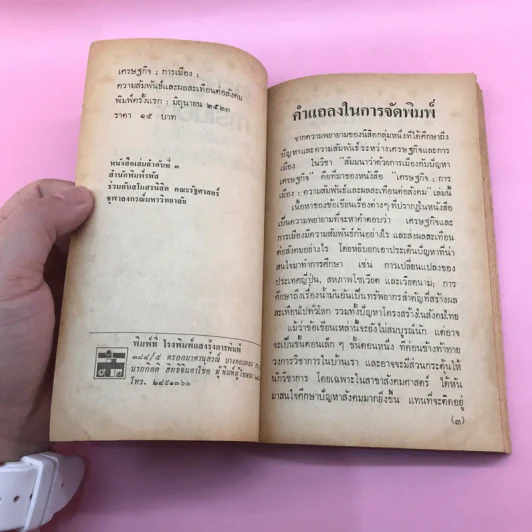 เศรษฐกิจ ; การเมือง :
ความสัมพันธ์และผลสะเทือนต่อสังคม
พิมพ์ครั้งแรก : มิถุนายน ๒๕๒๓
ราคา ๑๕ บาท
หนังสือเล่มลำดับที่ ๓
สำนักพิมพ์รหัส
ร่วมกับสโมสรนิสิต คณะรัฐศาสตร์
จุฬาลงกรณ์มหาวิทยาลัย
พิมพ์ที่ โรงพิมพ์แสงรุ้งการพิมพ์
๓๘๔/๕ ตรอกมาตานุสรณ์
โทร. ๒๘๔๑๓๖๐
คำแถลงในการจัดพิมพ์
จากความพยายามของนิสิตกลุ่มหนึ่งที่ได้ศึกษาถึง
ปัญหาและความสัมพันธ์ระหว่างเศรษฐกิจและการ
เมือง ในวิชา "สัมมนาว่าด้วยการเมืองกับปัญหา
เศรษฐกิจ" คือที่มาของหนังสือ "เศรษฐกิจ ; การ
เมือง : ความสัมพันธ์และผลสะเทือนต่อสังคม" เล่มนี้
เนื้อหาของข้อเขียนเรื่องต่างๆ ที่ปรากฏในหนังสือ
เป็นความพยายามที่จะหาคำตอบว่า เศรษฐกิจและ
การเมืองมีความสัมพันธ์กันอย่างไร และส่งผลสะเทือน
ต่อสังคมอย่างไร โดยหยิบยกเอาประเด็นปัญหาที่น่า
สนใจมาทำการศึกษา เช่น การเปลี่ยนแปลงของ
ประเทศญี่ปุ่น, สหภาพโซเวียต และเวียดนาม; การ
ศึกษาถึงเรื่องน้ำมันอันเป็นทรัพยากรสำคัญที่สร้างผล
สะเทือนไปทั่วโลก รวมทั้งปัญหาโครงสร้างในสังคมไทย
แม้ว่าข้อเขียนเหล่านี้จะยังไม่สมบูรณ์นัก แต่อาจ
จะเป็นขั้นตอนเล็กๆ ขั้นตอนหนึ่ง ที่ค่อนข้างท้าทาย
วงการวิชาการในบ้านเรา และอาจจะมีส่วนกระตุ้นให้
นักวิชาการ โดยเฉพาะในสาขาสังคมศาสตร์ ได้หัน
มาสนใจศึกษาปัญหาสังคมมากยิ่งขึ้น แทนที่จะติดอยู่
(๓)